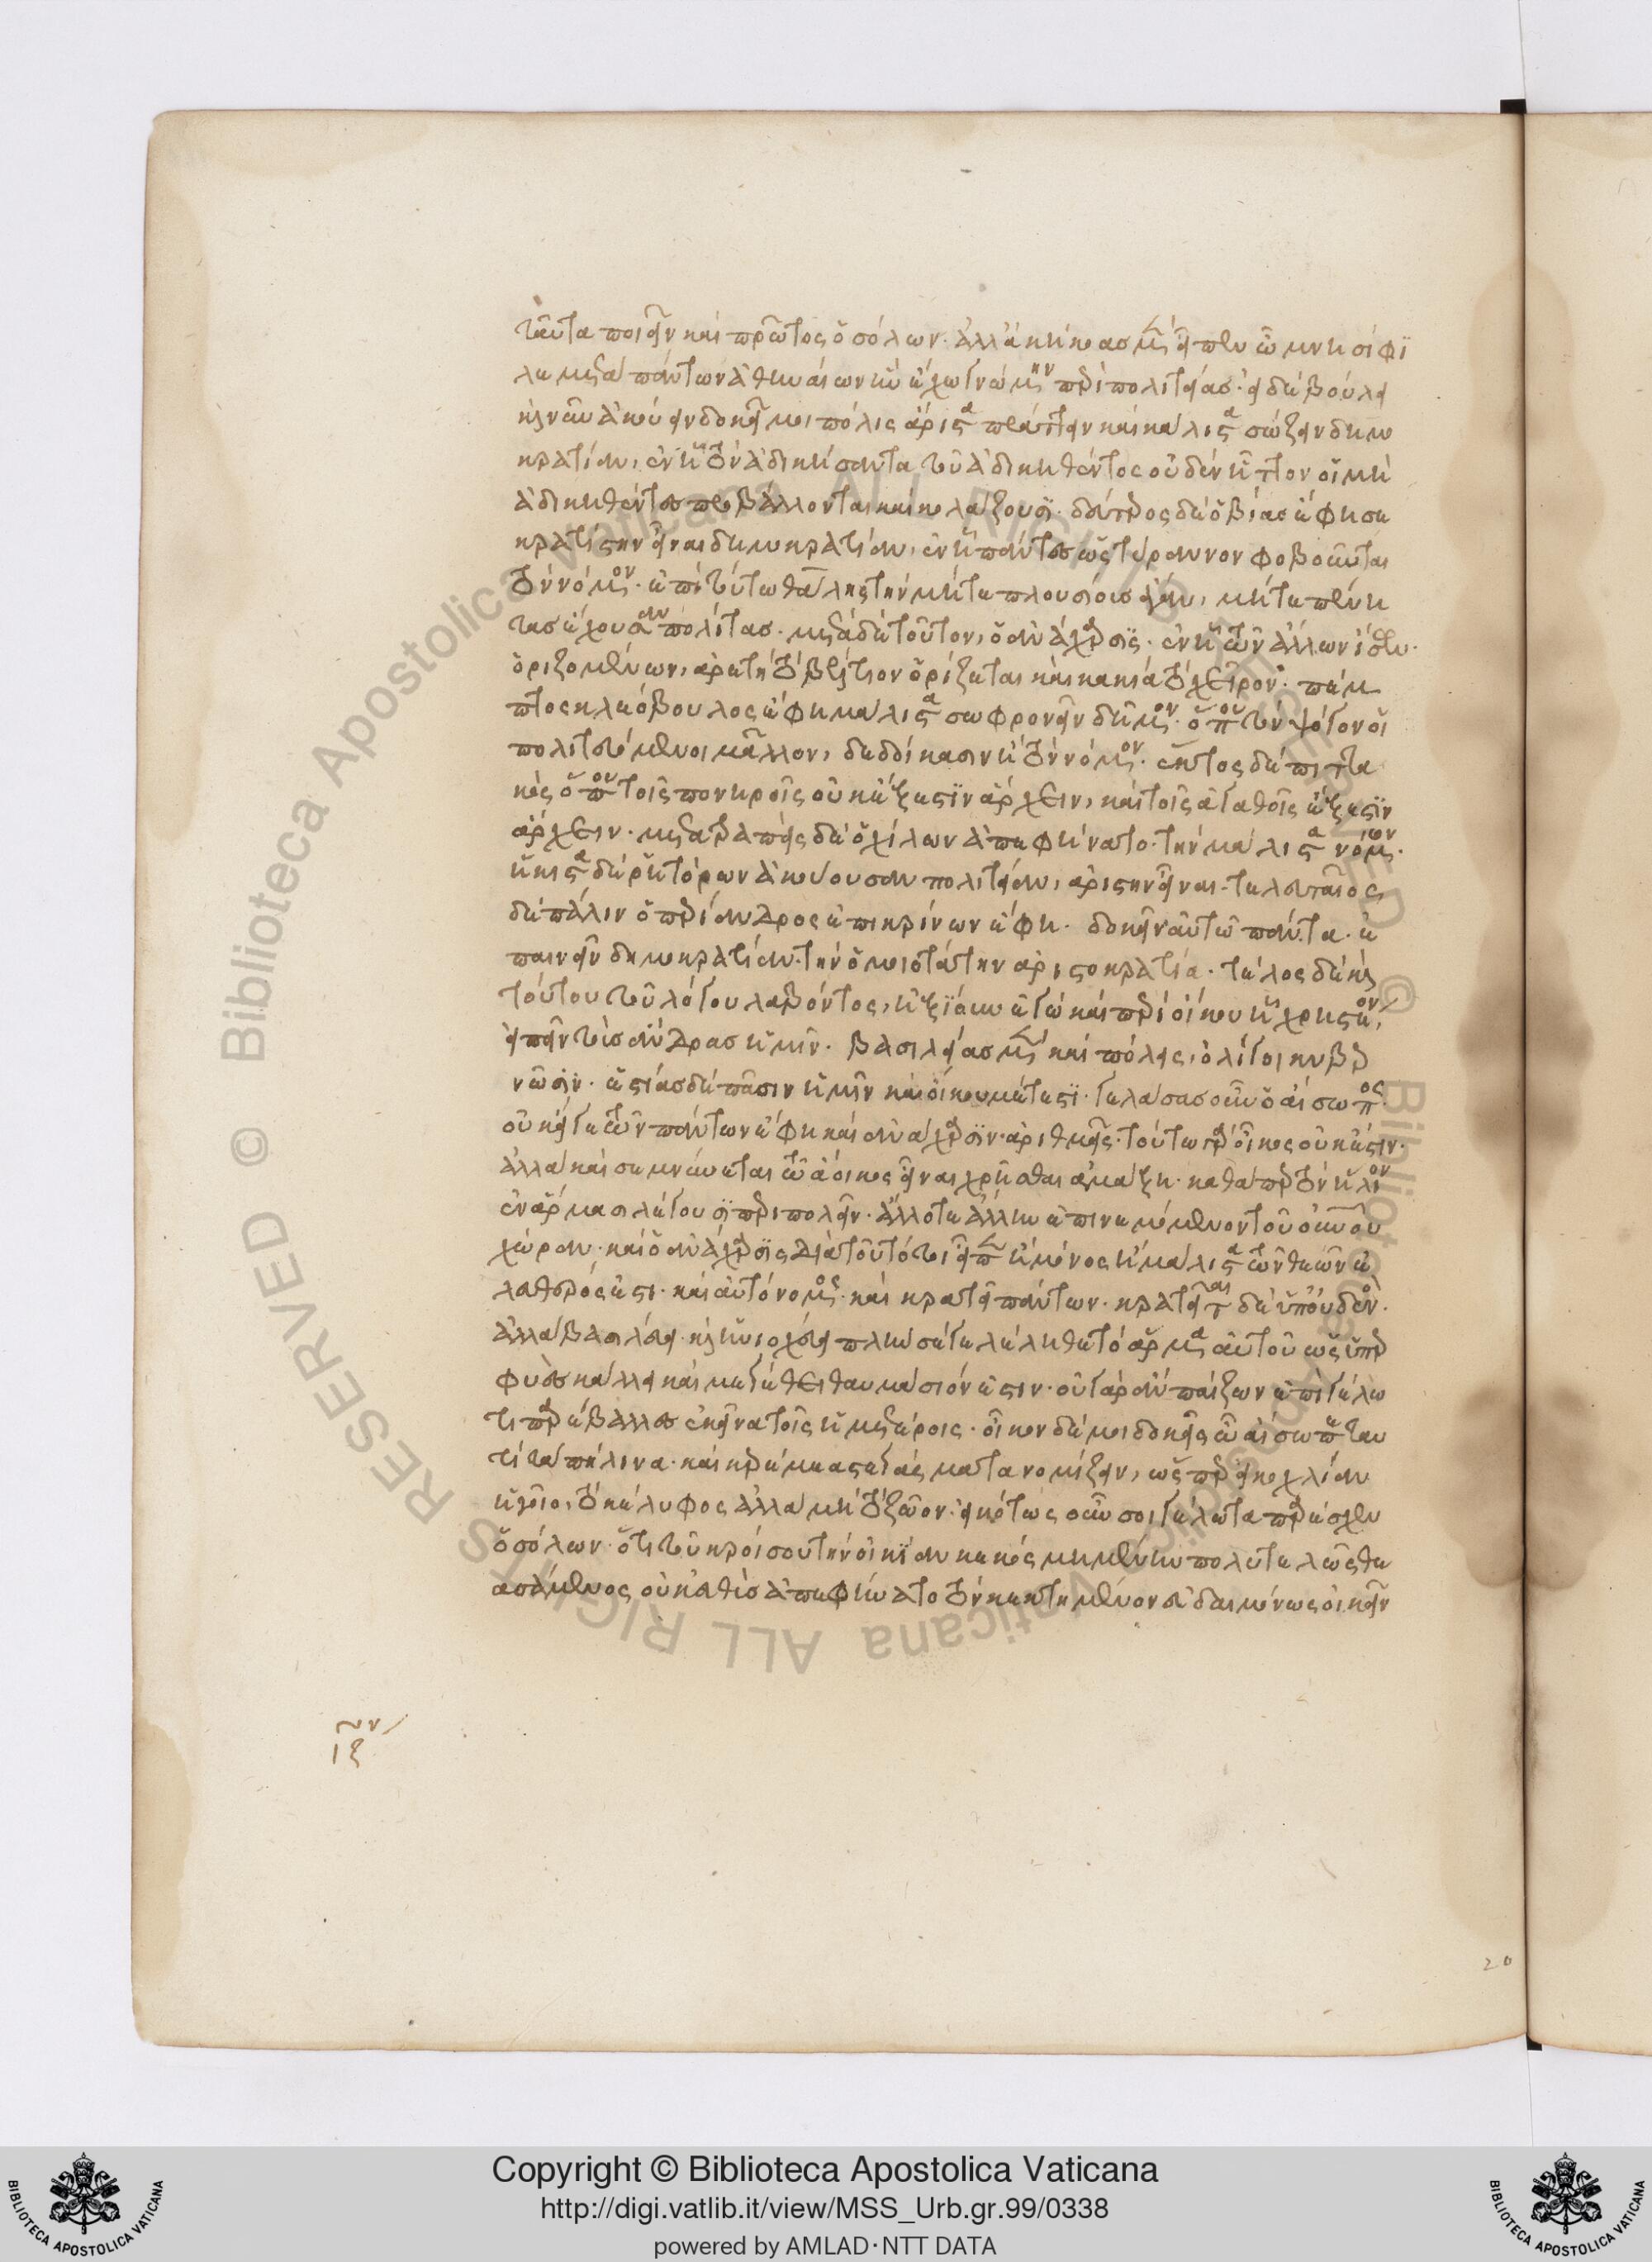 ταῦτα ποιεῖν καὶ πρῶτος ὁ σόλων. ἀλλὰ καὶ νέας μὲν εἶπεν ὦ μνησίφι
λε μετὰ πάντων ἀθηναίων ἢν ἔχω γνώμην περὶ πολιτείας. εἰ δὲ βούλει
καὶ νῦν ἀκούειν δοκεῖ μοι πόλις ἄριστα πράττειν καὶ μάλιστα σώζειν δημο
κρατίαν, ἐν ᾗ τὸν ἀδικήσαντα τοῦ ἀδικηθέντος οὐδὲν ἧττον οἱ μὴ
ἀδικηθέντες προβάλλονται καὶ κολάζουσι. δεύτερος δὲ ὁ βίας ἔφησε
κρατίστην εἶναι δημοκρατίαν, ἐν ᾗ πάντες ὡς τύραννον φοβοῦνται
τὸν νόμον. ἐπὶ τούτω θαλῆς τὴν μήτε πλουσίους ἄγαν, μήτε πένη
τας ἔχουσαν πολίτας. μετὰ δὲ τοῦτον, ὁ ἀνάχαρσις. ἐν ᾗ τῶν ἄλλων ἴσων
ὁριζομένων, ἀρετῇ τὸ βέλτιον ὁρίζεται καὶ κακία τὸ χεῖρον. πέμ
πτος κλεόβουλος ἔφη μάλιστα σωφρονεῖν δῆμον. ὅπου τὸν ψόγον οἱ
πολιτευόμενοι μᾶλλον, δεδοίκασιν ἢ τὸν νόμον. ἕκτος δὲ πιττα
κὸς ὅπου τοῖς πονηροῖς οὐκ ἔξεστιν ἄρχειν, καὶ τοῖς ἀγαθοῖς ἔξεστιν
ἄρχειν. μεταστραφεὶς δὲ ὁ χίλων ἀπεφήνατο. τὴν μάλιστα νόμων.
ἥκιστα δὲ ῥητόρων ἀκούουσαν πολιτείαν, ἀρίστην εἶναι. τελευταῖος
δὲ πάλιν ὁ περίανδρος ἐπικρίνων ἔφη. δοκεῖν αὐτῶ πάντα. ἐ
παινεῖν δημοκρατίαν. τὴν ὁμοιοτάτην ἀριστοκρατία. τέλος δὲ καὶ
τούτου τοῦ λόγου λαβόντος, ἠξίουν ἐγὼ καὶ περὶ οἴκου ἡ χρηστὸν,
εἰπεῖν τοὺς ἄνδρας ἡμῖν. βασιλείας μὲν καὶ πόλεις, ὀλίγοι κυβερ
νῶσιν. ἑστίας δὲ πᾶσιν ἡμῖν καὶ οἴκου μέτεστι. γελάσας οὖν ὁ αἴσωπος
οὐκ εἴ γε τῶν πάντων ἔφη καὶ ἀνάχαρσιν. ἀριθμεῖς. τούτω γὰρ οἶκος οὐκ ἔστιν.
ἀλλὰ καὶ σεμνύνεται τῶ ἄοικος εἶναι χρῆσθαι ἁμάξη. καθάπερ τὸν ἥλιον
ἐν ἅρματι λέγουσι περιπολεῖν. ἄλλοτε ἄλλην ἐπινεμόμενον τοῦ οὐρανοῦ
χώραν. καὶ ὁ ἀνάχαρσις διὰ τοῦτό τοι εἶπεν ἢ μόνος ἢ μάλιστα τῶν θεῶν ἐ
λεύθερός ἐστι. καὶ αὐτόνομος. καὶ κρατεῖ πάντων. κρατεῖται δὲ ὑπ' οὐδενός.
ἀλλὰ βασιλεύει καὶ ἡνιοχεύει πλὴν σέ γε λέληθε τὸ ἅρμα αὐτοῦ ὡς ὑπερ
φυὲς κάλλει καὶ μεγέθει θαυμάσιόν ἐστιν. οὐ γὰρ ἂν παίζων ἐπὶ γέλω
τι παρέβαλλες ἐκεῖνα τοῖς ἡμετέροις. οἶκον δέ μοι δοκεῖς ὦ αἴσωπε ταυ
τὶ τὰ πήλινα. καὶ κεράμεα στέγασματα νομίζειν, ὥσπερ εἰ κοχλίαν
ἡγοῖο, τὸ κέλυφος ἀλλὰ μὴ τὸ ζῶον. εἰκότως οὖν σοι γέλωτα παρέσχεν
ὁ σόλων. ὅτι τοῦ κροίσου τὴν οἰκίαν κεκοσμημένην πολυτελῶς θε
ασάμενος οὐκ εὐθὺς ἀπεφήνατο τὸν κεκτημένον εὐδαιμόνως οἰκεῖν
20
Copyright © Biblioteca Apostolica Vaticana
http://digi.vatlib.it/view/MSS_Urb.gr.99/0338
powered by AMLAD·NTT DATA